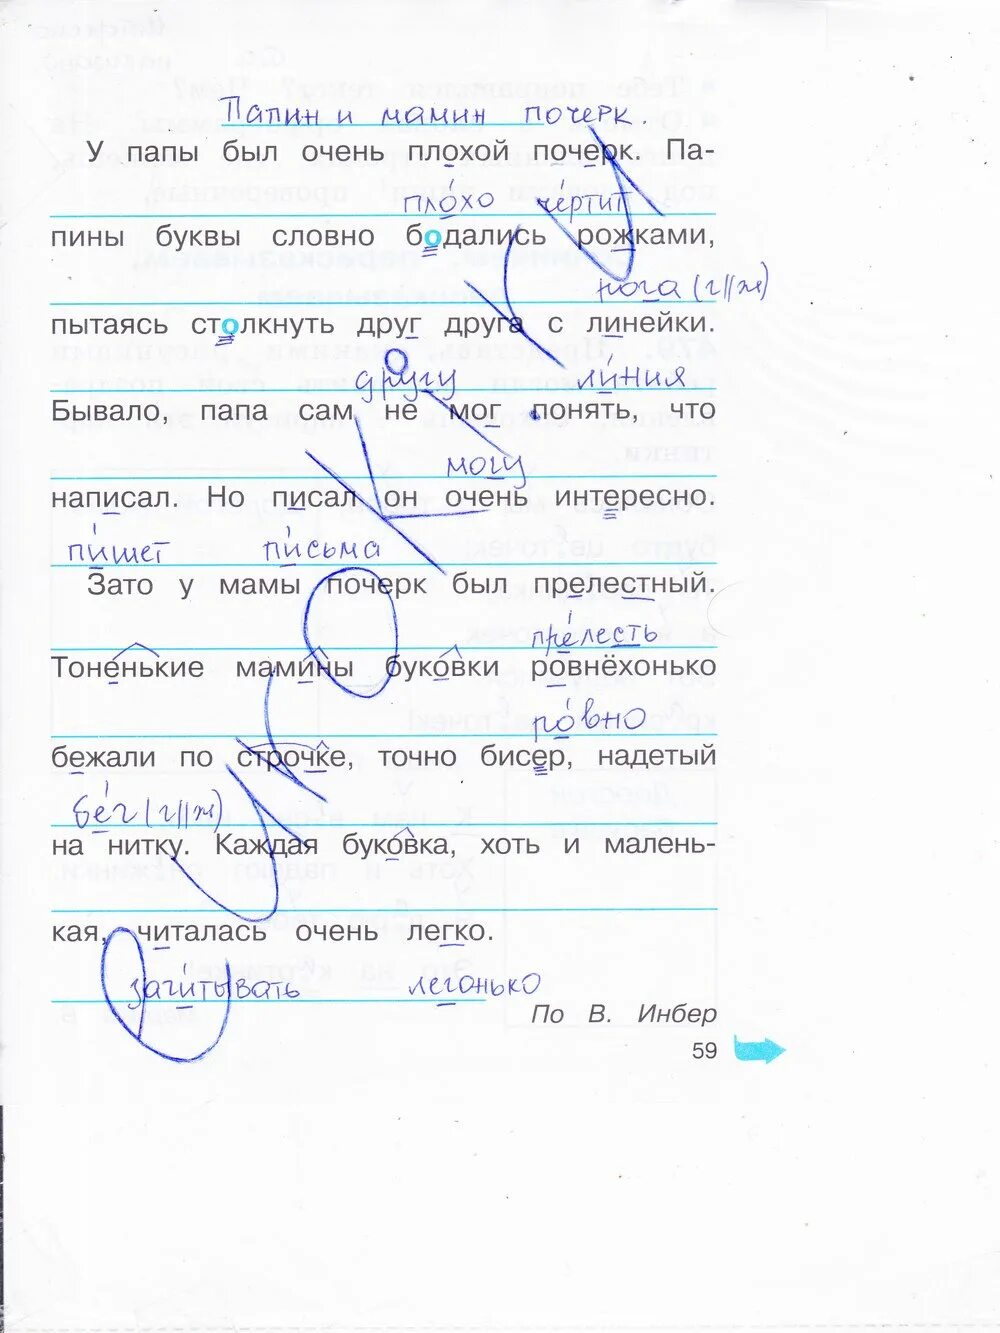 Папин и мамин почерк.
У папы был очень плохой почерк. Па-
плохо чертит
пины буквы словно бодались рожками,
рога (г||ж)
пытаясь столкнуть друг друга с линейки.
другу линия
Бывало, папа сам не мог понять, что
могу
написал. Но писал он очень интересно.
пишет письма
Зато у мамы почерк был прелестный.
прелесть
Тоненькие мамины буковки ровнёхонько
ровно
бежали по строчке, точно бисер, надетый
бег (г||ж)
на нитку. Каждая буковка, хоть и малень-
кая, читалась очень легко.
зачитывать легонько
По В. Инбер
59